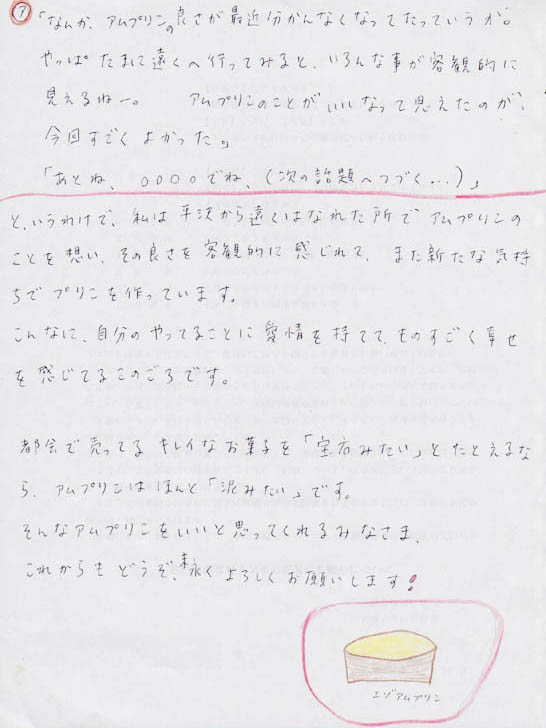 ⑦
「なんか、アムプリンの良さが最近分かんなくなってたっていうか。
やっぱ たまに遠くへ行ってみると、いろんな事が客観的に
見えるねー。 アムプリンのことがいいなって思えたのが、
今回すごくよかった。」
「あとね、○○○○でね、（次の話題へつづく…）」
と、いうわけで、私は平沢から遠くはなれた所でアムプリンの
ことを想い、その良さを客観的に感じれて、また新たな気持
ちでプリンを作っています。
こんなに、自分のやってることに愛情を持てて、ものすごく幸せ
を感じてるこのごろです。
都会で売ってるキレイなお菓子を「宝石みたい」とたとえるな
ら、アムプリンはほんと「泥みたい」です。
そんなアムプリンをいいと思ってくれるみなさま、
これからもどうぞ、末永くよろしくお願いします！
エゾアムプリン